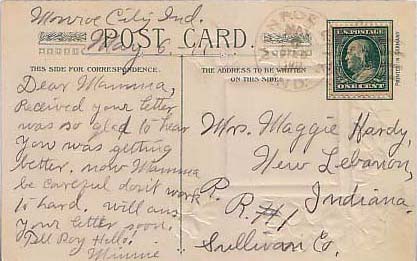 Monroe City Ind.
May 6
POST CARD
THIS SIDE FOR CORRESPONDENCE.
THE ADDRESS TO BE WRITTEN
ON THIS SIDE.
U.S. POSTAGE
ONE CENT
PRINTED IN GERMANY
Dear Mamma,
Received your letter
was so glad to hear
you was getting
better. now Mamma
be careful don't work
to hard. will ans
your letter soon.
Tell Roy Hello.
Minnie
Mrs. Maggie Hardy,
New Lebanon,
Indiana.
R. R. #1
Sullivan Co.